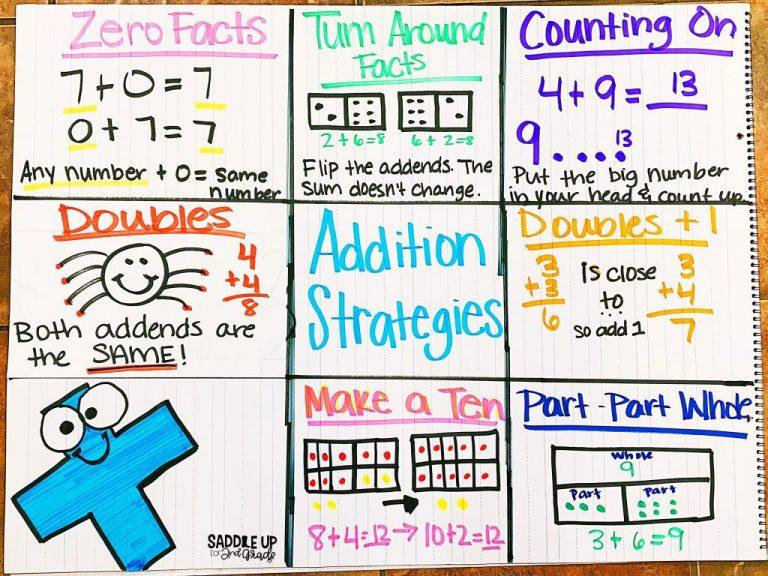 Zero Facts
7+0=7
0+7=7
Any number + 0= same
number
Turn Around
Facts
2+6=8 6+2=8
Flip the addends. The
Sum doesn't change.
Counting On
4+9= 13
9 .... 13
Put the big number
in your head & count up
Doubles
4
+4
8
Both addends are
the SAME!
Addition
Strategies
Doubles +1
3
+3
6
is close
to
so add 1
3
+4
7
SADDLE UP
for 2nd Grade
Make a Ten
8+4=12 → 10+2=12
Part-Part Whole
Whole
9
Part Part
3+6=9